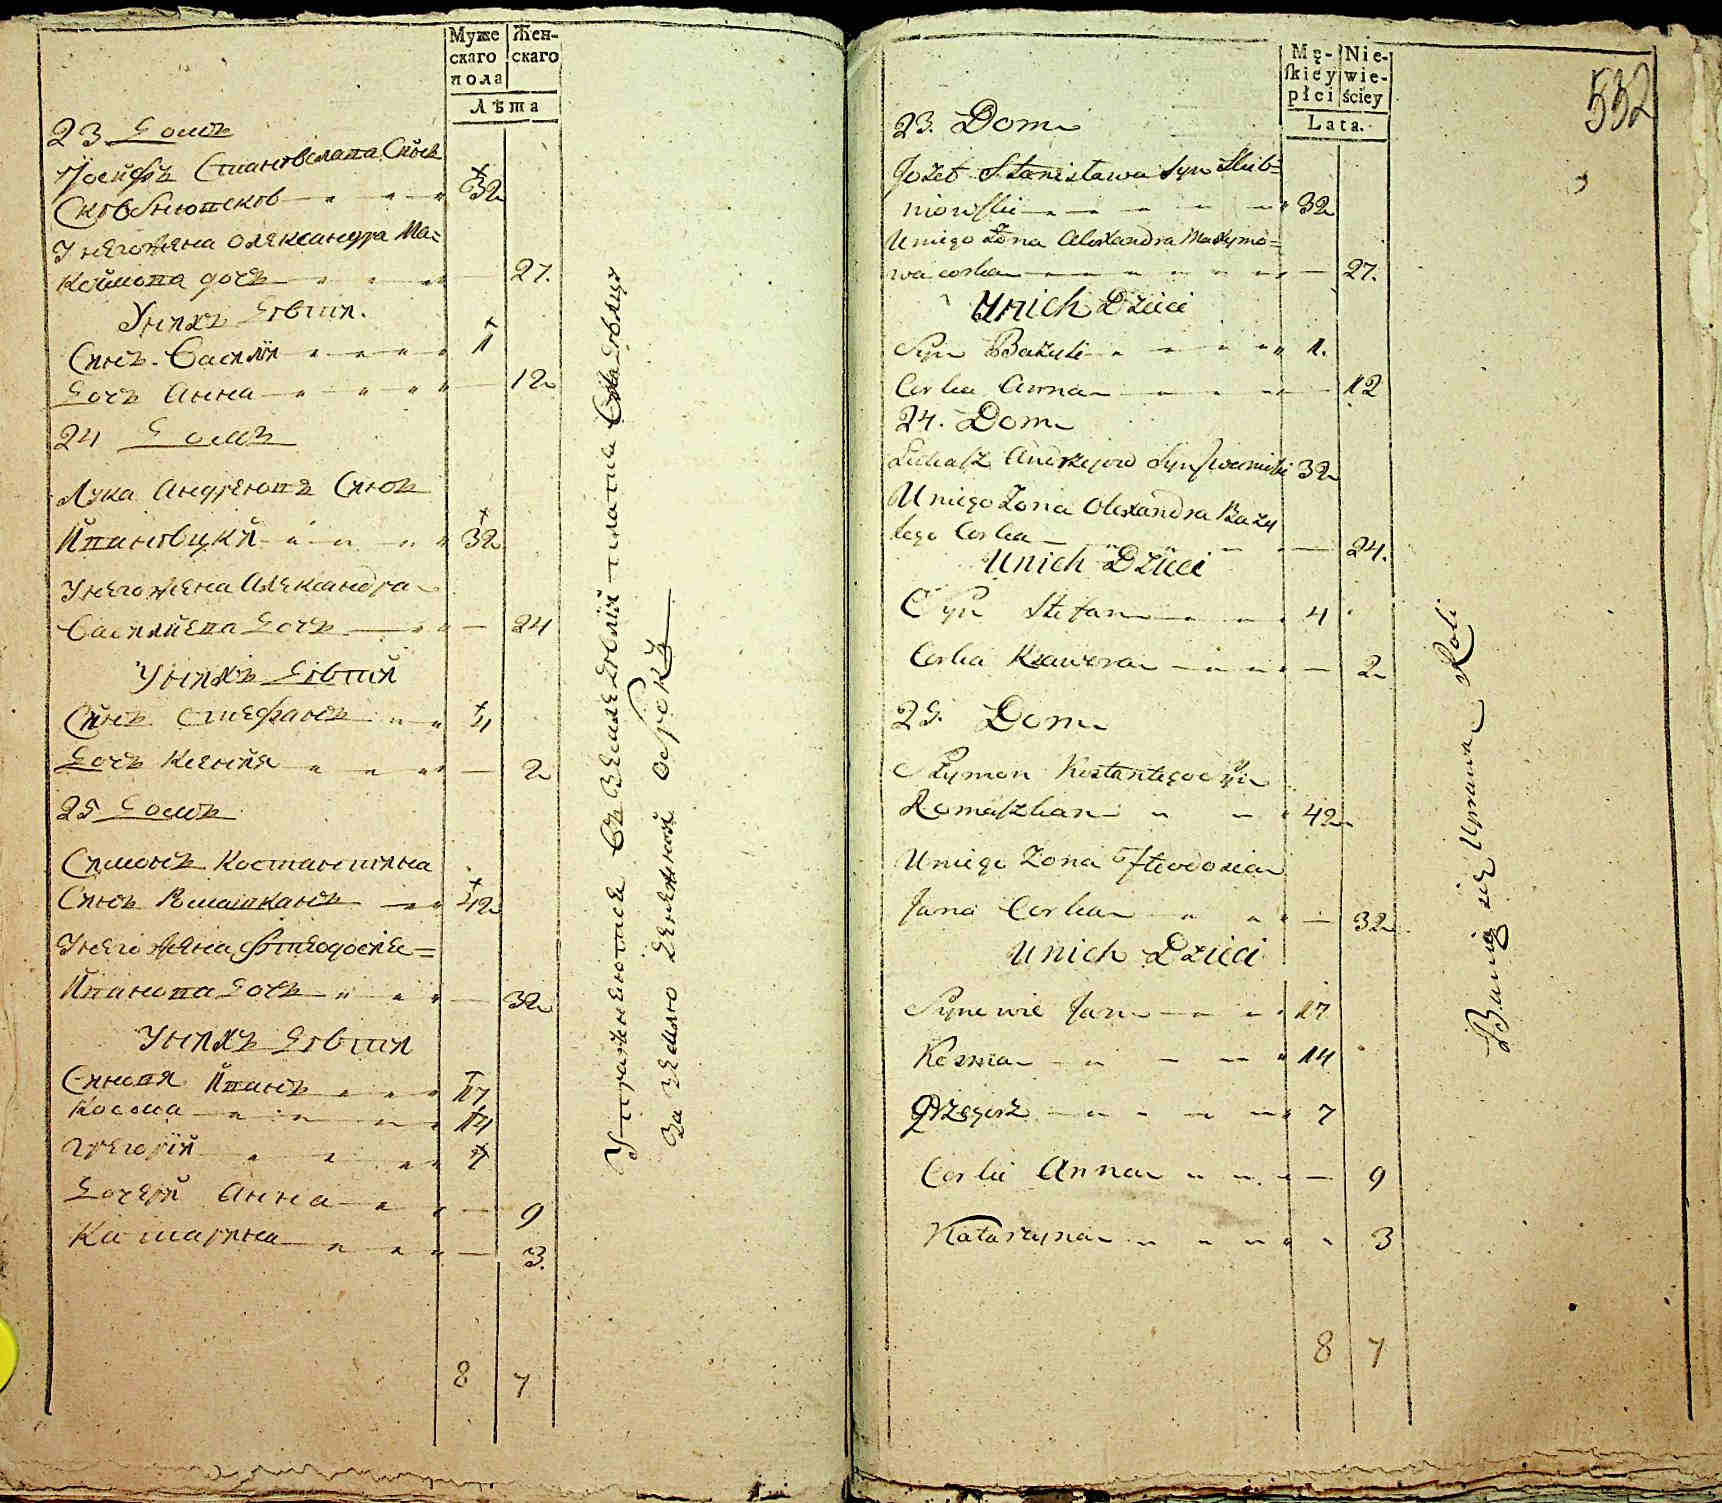 Муже Жен-
скаго скаго
пола
Лѣта
23 Домъ
Іосифъ Станислававъ Сынъ
32
Унего жена Олександра Ма=
ксимова дочь 27.
Унихъ Дѣти.
Сынъ Василiй 1
Дочь Анна 12
24 Домъ
Лука Андреювъ Сынъ
Ивановцкiй 32
Унего жена Александра
Василиева Дочь 24
Унихъ Дѣтий
Сынъ Стефанъ 4
Дочь Ксения 2
25 Домъ
Симонъ Костантина
Сынъ Ромашканъ 42
Унего жена Фтеодосие=
Иванова Дочь 32
Унихъ Дѣти
Сыновя Иванъ 17
Косма 14
Григорiй 7
Дочери Анна 9
Катарина 3.
8 7
Упражнеютсе въ земледѣлiй
за землю денежной оброкъ
532
Mę- Nie-
skiey wie-
płci ściey
Lata.
23. Dom
Jozef Stanisława Syn Skib=
niowski 32
Uniego Żona Alexandra Maxymo=
wa corka 27.
Unich Dzieci
Syn Bazyli 1.
Corka Anna 12
24. Dom
Łukasz Andrzejow Syn 32
Uniego Żona Olexandra Bazy
lego Corka 24.
Unich Dzieci
Syn Stefan 4
Corka Xawera 2
25. Dom
Szymon Kostantego Syn
Romaszkan 42
Uniego Żona Fteodosia
Jana Corka 32
Unich Dzieci
Synowie Jan 17
Kosma 14
Grzegorz 7
Corki Anna 9
Katarzyna 3
8 7
Bawią się Uprawą Roli